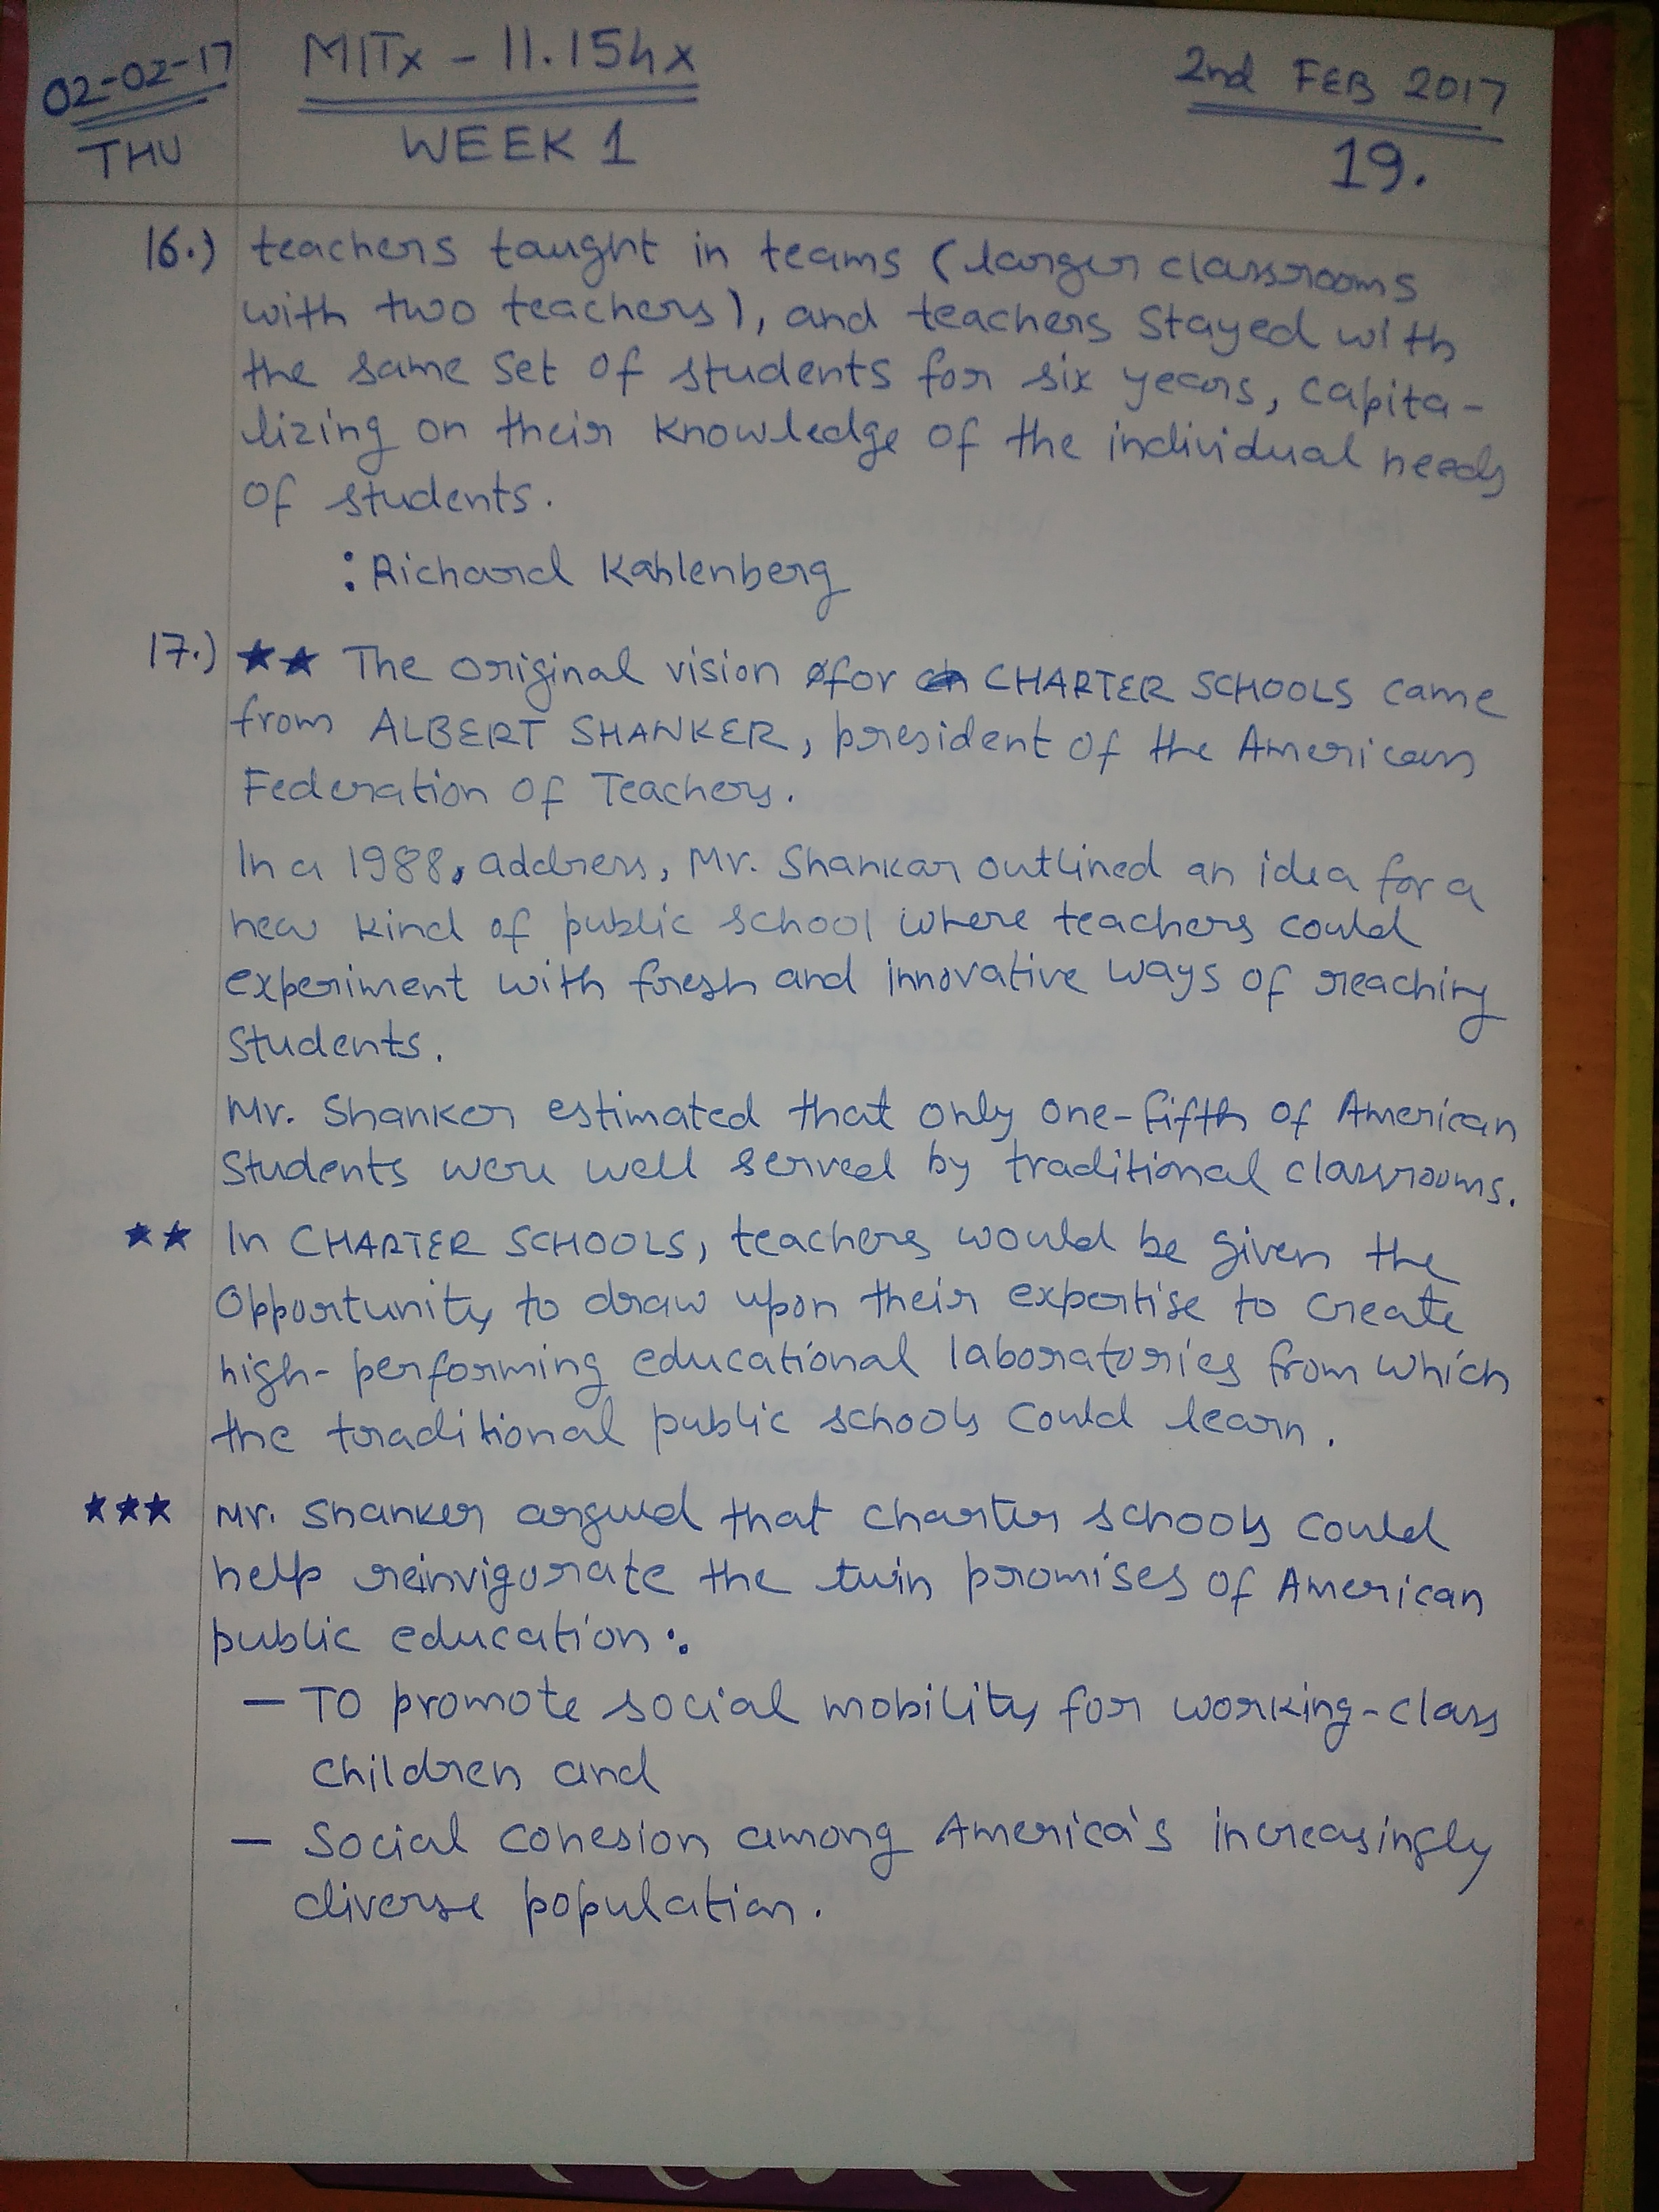 02-02-17
THU
MITx - 11.154x
WEEK 1
2nd FEB 2017
19.
16.) teachers taught in teams (larger classrooms
with two teachers), and teachers stayed with
the same set of students for six years, capita-
lizing on their knowledge of the individual needs
of students.
: Richard Kahlenberg
17.) ★★ The original vision for CHARTER SCHOOLS came
from ALBERT SHANKER, president of the American
Federation of Teachers.
In a 1988, address, Mr. Shankar outlined an idea for a
new kind of public school where teachers could
experiment with fresh and innovative ways of reaching
students.
Mr. Shanker estimated that only one-fifth of American
students were well served by traditional classrooms.
★★ In CHARTER SCHOOLS, teachers would be given the
opportunity to draw upon their expertise to create
high-performing educational laboratories from which
the traditional public schools could learn.
★★★ Mr. Shanker argued that charter schools could
help reinvigorate the twin promises of American
public education:
— To promote social mobility for working-class
children and
— Social cohesion among America's increasingly
diverse population.